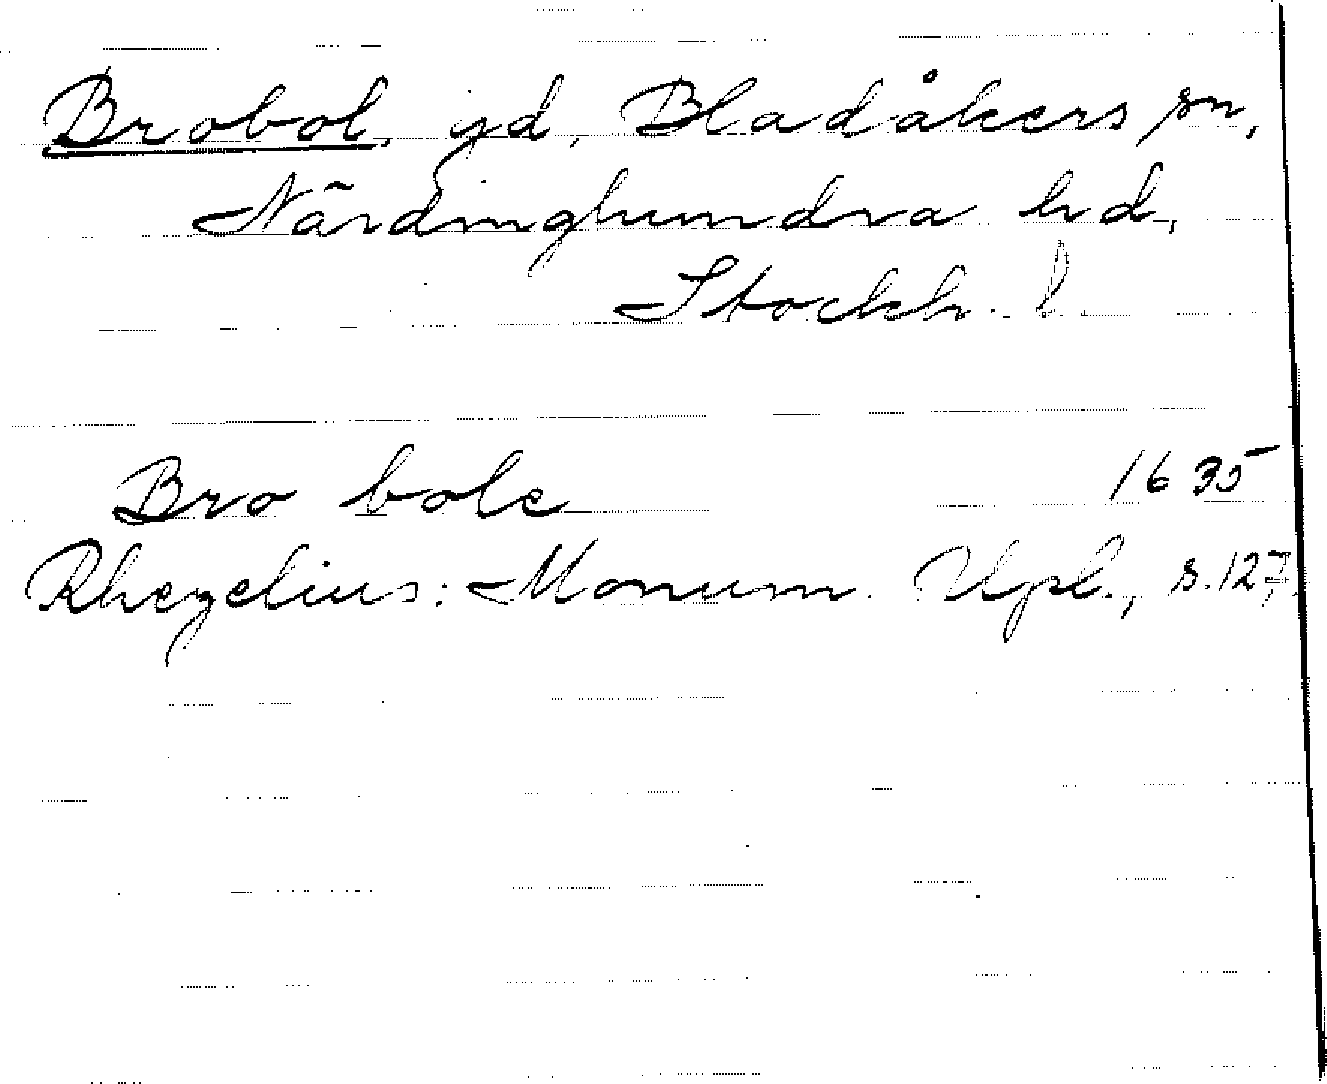 Brobol, gd, Bladåkers sn,
Närdinghundra hd,
Stockh. l.
Bro bole 1635
Rhezelius: Monum. Upl., s. 127.